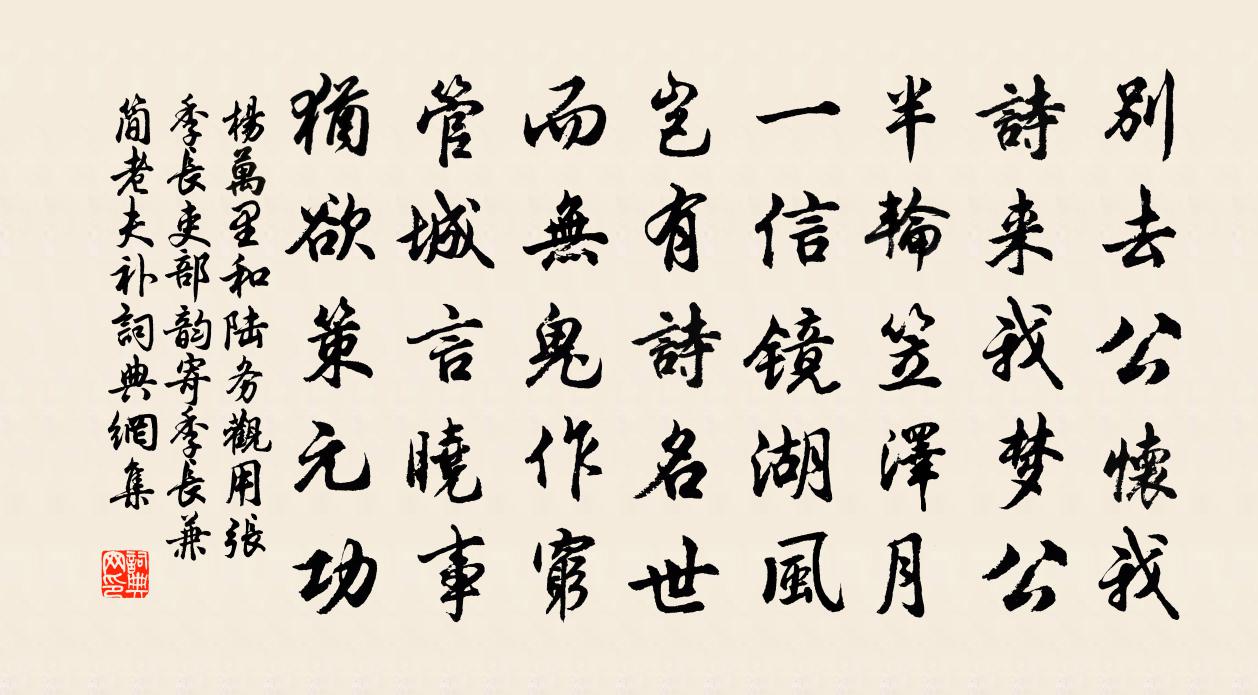 別去公懷我
詩来我梦公
半輪笠澤月
一信镜湖風
岂有詩名世
而無鬼作窮
管城言曉事
猶欲策元功
楊萬里和陆务觀用張
季長吏部韵寄季長兼
简老夫补詞典網集
詞典网印